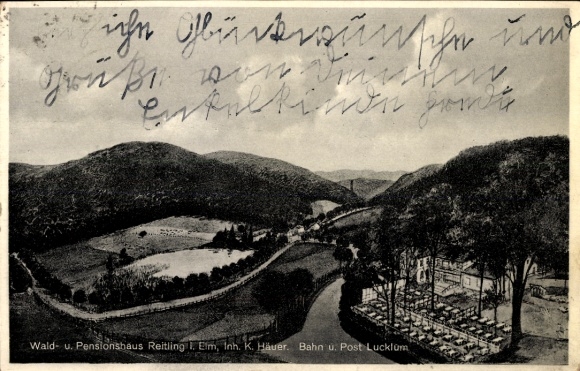 liche Glückwünsche und
Grüße von deinem
Enkelkinde
Wald- u. Pensionshaus Reitling i. Elm, Inh. K. Häuer. Bahn u. Post Lucklum